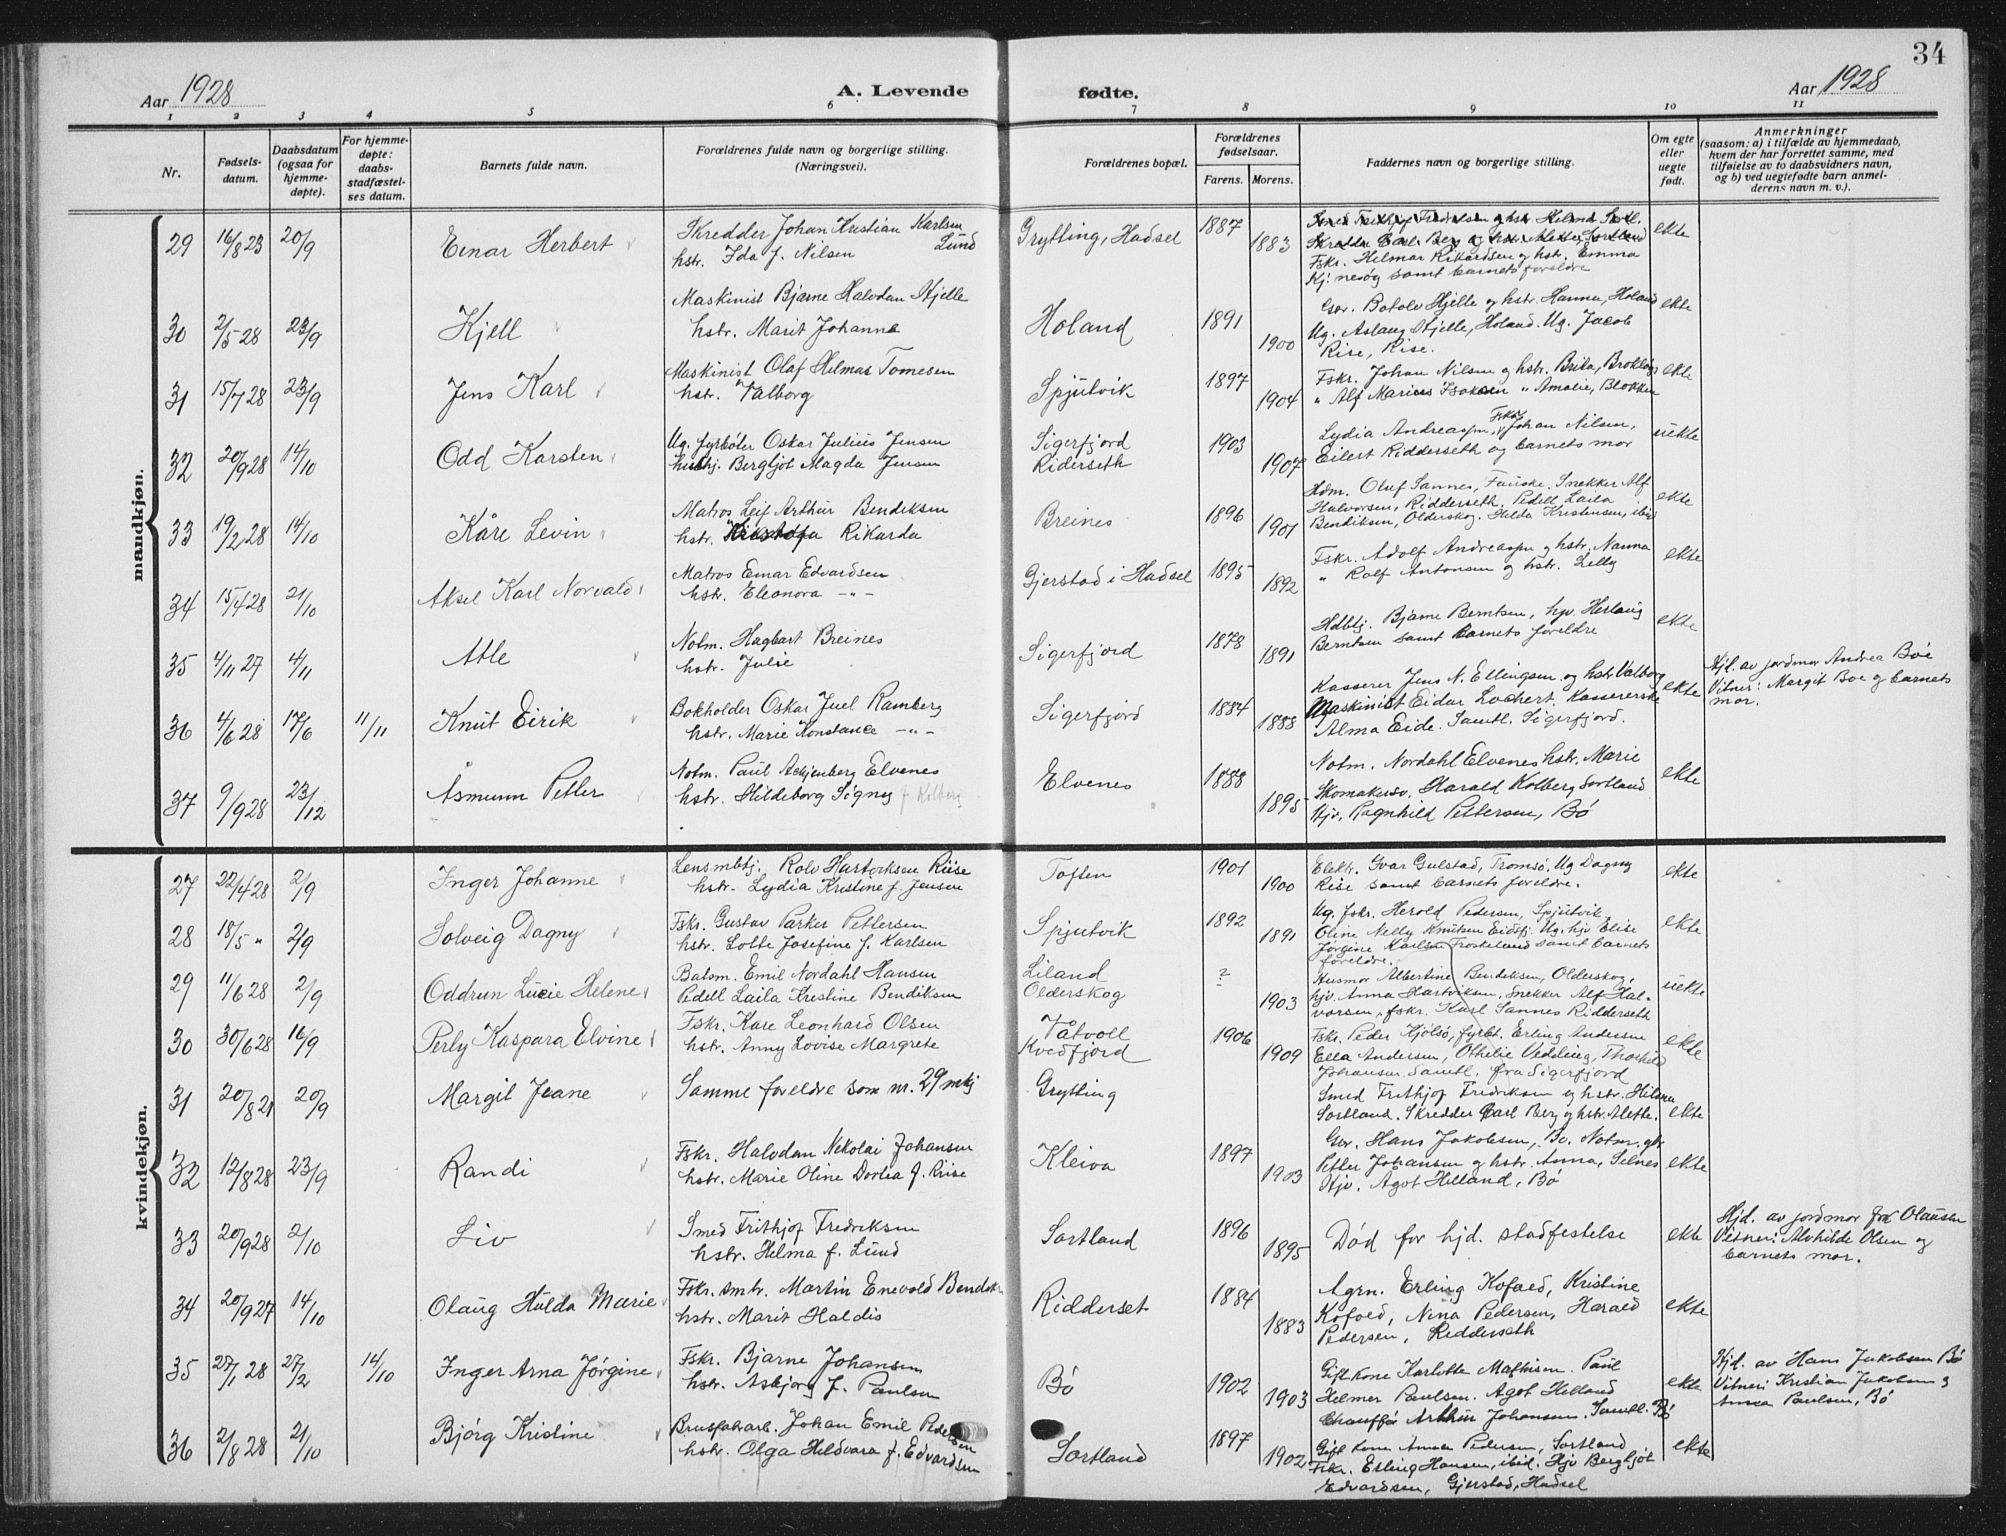 34
Aar 1928
A. Levende
fødte.
Aar 1928
1 2 3 4 5 6 7 8 9 10 11
Nr.
Fødsels-
datum.
Daabsdatum
(ogsaa for
hjemme-
døpte).
For hjemme-
døpte:
daabs-
stadfæstel-
ses datum.
Barnets fulde navn.
Forældrenes fulde navn og borgerlige stilling.
(Næringsvei).
Forældrenes bopæl.
Forældrenes
fødselsaar.
Farens. Morens.
Faddernes navn og borgerlige stilling.
Om egte
eller
uegte
født.
Anmerkninger
(saasom: a) i tilfælde av hjemmedaab,
hvem der har forrettet samme, med
tilføielse av to daabsvidners navn,
og b) ved uegtefødte barn anmel-
derens navn m. v.).
mandkjøn.
29 16/8 23 20/9 Einar Herbert
Skredder Johan Kristian Karlsen
Lund
hstr. Ida f. Nilsen
Grytting, Hadsel 1887 1883
Smed Frithjof Fredriksen og hstr Helma Sortl.
Skredder Carl Berg og hstr. Alette, Sortland
Fskr. Helmar Rikardsen og hstr. Emma
Kj:nesøy samt barnets foreldre
ekte
30 2/5 28 23/9 Kjell
Maskinist Bjarne Halvdan Hjelle
hstr. Marit Johanne
Holand 1891 1900
Gbr. Botolv Hjelle og hstr. Hanna, Holand
Ug. Aslaug Hjelle, Holand. Ug. Jacob
Rise, Rise.
ekte
31 15/7 28 23/9 Jens Karl
Maskinist Olaf Helmar Tomesen
hstr. Valborg
Spjutvik 1897 1904
Fskr. Johan Nilsen og hstr. Brita,
" Alf Marius Isaksen " Amalie, Blokken
ekte
32 20/9 28 14/10 Odd Karsten
Ug. fyrbøter Oskar Julius Jensen
hushj. Bergljot Magda Jensen
Sigerfjord
Ridderseth
1903 1907
Lydia Andreassen, Fskr Johan Nilsen,
Eilert Ridderseth og barnets mor
uekte
33 19/2 28 14/10 Kåre Levin
Matros Leif Arthur Bendiksen
hstr. Rikarda
Breines 1896 1901
Hdm. Oluf Sannes, Fauske. Snekker Alf
Halvorsen, Ridderseth. Pedell Laila
Bendiksen, Olderskog. Hilda Kristensen, ibid
ekte
34 15/4 28 21/10 Aksel Karl Norvald
Matros Einar Edvardsen
hstr. Eleonora -"-
Gjerstad i Hadsel 1895 1892
Fskr. Adolf Andreassen og hstr. Nanna
" Rolf Antonsen og hstr. Lelly
ekte
35 4/11 27 4/11 Atle
Notm. Hagbart Breines
hstr. Julie
Sigerfjord 1878 1891
Hdlbtj. Bjarne Berntsen, hjv. Herlaug
Berntsen samt barnets foreldre
ekte
36 4/6 28 17/6 11/11 Knut Eirik
Bokholder Oskar Juel Ramberg
hstr. Marie Konstance -"-
Sigerfjord 1884 1888
Kasserer Jens N. Ellingsen og hstr Valborg
Maskinist Eidar Lochert. Kassererske
Alma Eide. Samtl. Sigerfjord.
ekte
Hjd. av jordmor Andrea Bøe
Vitner: Margit Boe og barnets
mor.
37 9/9 28 23/12 Åsmunn Petter
Notm. Paul Elvenes
hstr. Hildeborg Signy f. Kolberg
Elvenes 1888 1895
Notm. Nordahl Elvenes hstr. Marie
Skomakersv. Harald Kolberg Sortland
Hjv. Ragnhild Pettersen, Bö
ekte
kvindekjøn.
27 22/4 28 2/9 Inger Johanne
Lensmbtj. Rolv Hartviksen Riise
hstr. Lydia Kristine f. Jensen
Toften 1901 1900
Elektr. Ivar Gulstad, Tromsö. Ug Dagny
Riise samt barnets foreldre.
ekte
28 18/5 " 2/9 Solveig Dagny
Fskr. Gustav Parker Pettersen
hstr. Lotte Josefine f. Karlsen
Spjutvik 1892 1891
Ug. fskr. Herold Pedersen, Spjutvik.
Oline Nelly Knutsen Eidsfj. Ug. hjv Elise
Jørgine Karlsen samt barnets
foreldre.
ekte
29 11/6 28 2/9 Oddrun Lucie Helene
Batsm. Emil Nordahl Hansen
Pedell Laila Kristine Bendiksen
Liland
Olderskog
? 1903
Husmor Albertine Bendiksen, Olderskog,
hjv. Anna Hartviksen, Snekker Alf Hal-
vorsen, fskr. Karl Sannes Ridderseth
uekte
30 30/6 28 16/9 Perly Kaspara Elvine
Fskr. Kare Leonhard Olsen
hstr. Anny Lovise Margrete
Våtvoll
Kvedfjord
1906 1909
Fskr. Peder Hjölsö, fyrbt. Erling Andersen
Ella Andersen, Othelie Vedding, Thorhild
Johansen. Samtl. fra Sigerfjord
ekte
31 20/8 21 20/9 Margit Jeane
Samme foreldre som nr. 29 mkj
Grytting
Smed Frithjof Fredriksen og hstr. Helma
Sortland. Skredder Carl Berg og hstr. Alette.
ekte
32 12/8 28 23/9 Randi
Fskr. Halvdan Nikolai Johansen
hstr. Marie Oline Dortea f. Riise
Kleiva 1897 1903
Gbr. Hans Jakobsen, Bö. Notm. gbr.
Petter Johansen og hstr. Anna, Selnes
Hjv. Agot Helland, Bö
ekte
33 20/9 28 2/10 Liv
Smed Frithjof Fredriksen
hstr. Helma f. Lund
Sortland 1896 1895
Död for hjd. stadfestelse
ekte
Hjd. av jordmor fru Olaussen
Vitner: Alvhilde Olsen og
barnets mor.
34 20/9 27 14/10 Olaug Hulda Marie
Fskr. smbr. Martin Enevold Bendiks.
hstr. Marit Haldis
Ridderset 1884 1883
Agrn. Erling Kofoed, Kristine
Kofoed, Nina Pedersen, Harald
Pedersen, Ridderseth
ekte
35 27/1 28 27/2 14/10 Inger Arna Jörgine
Fskr. Bjarne Johansen
hstr. Asbjørg f. Paulsen
Bö 1902 1903
Gift kone Karlotte Mathisen. Paul
Helmer Paulsen. Agot Helland
Chauffør Arthur Johansen. Samtl. Bö
ekte
Hjd. av Hans Jakobsen Bö
Vitner: Kristian Jakobsen og
Anna Paulsen, Bö
36 2/8 28 21/10 Bjørg Kristine
Brusfabarb. Johan Emil Pedersen
hstr. Olga Hildvara f. Edvardsen
Sortland 1897 1902
Gift kone Anna Pedersen, Sortland
Fskr. Erling Hansen, ibid. Hjv Bergljot
Edvardsen, Gjerstad, Hadsel
ekte